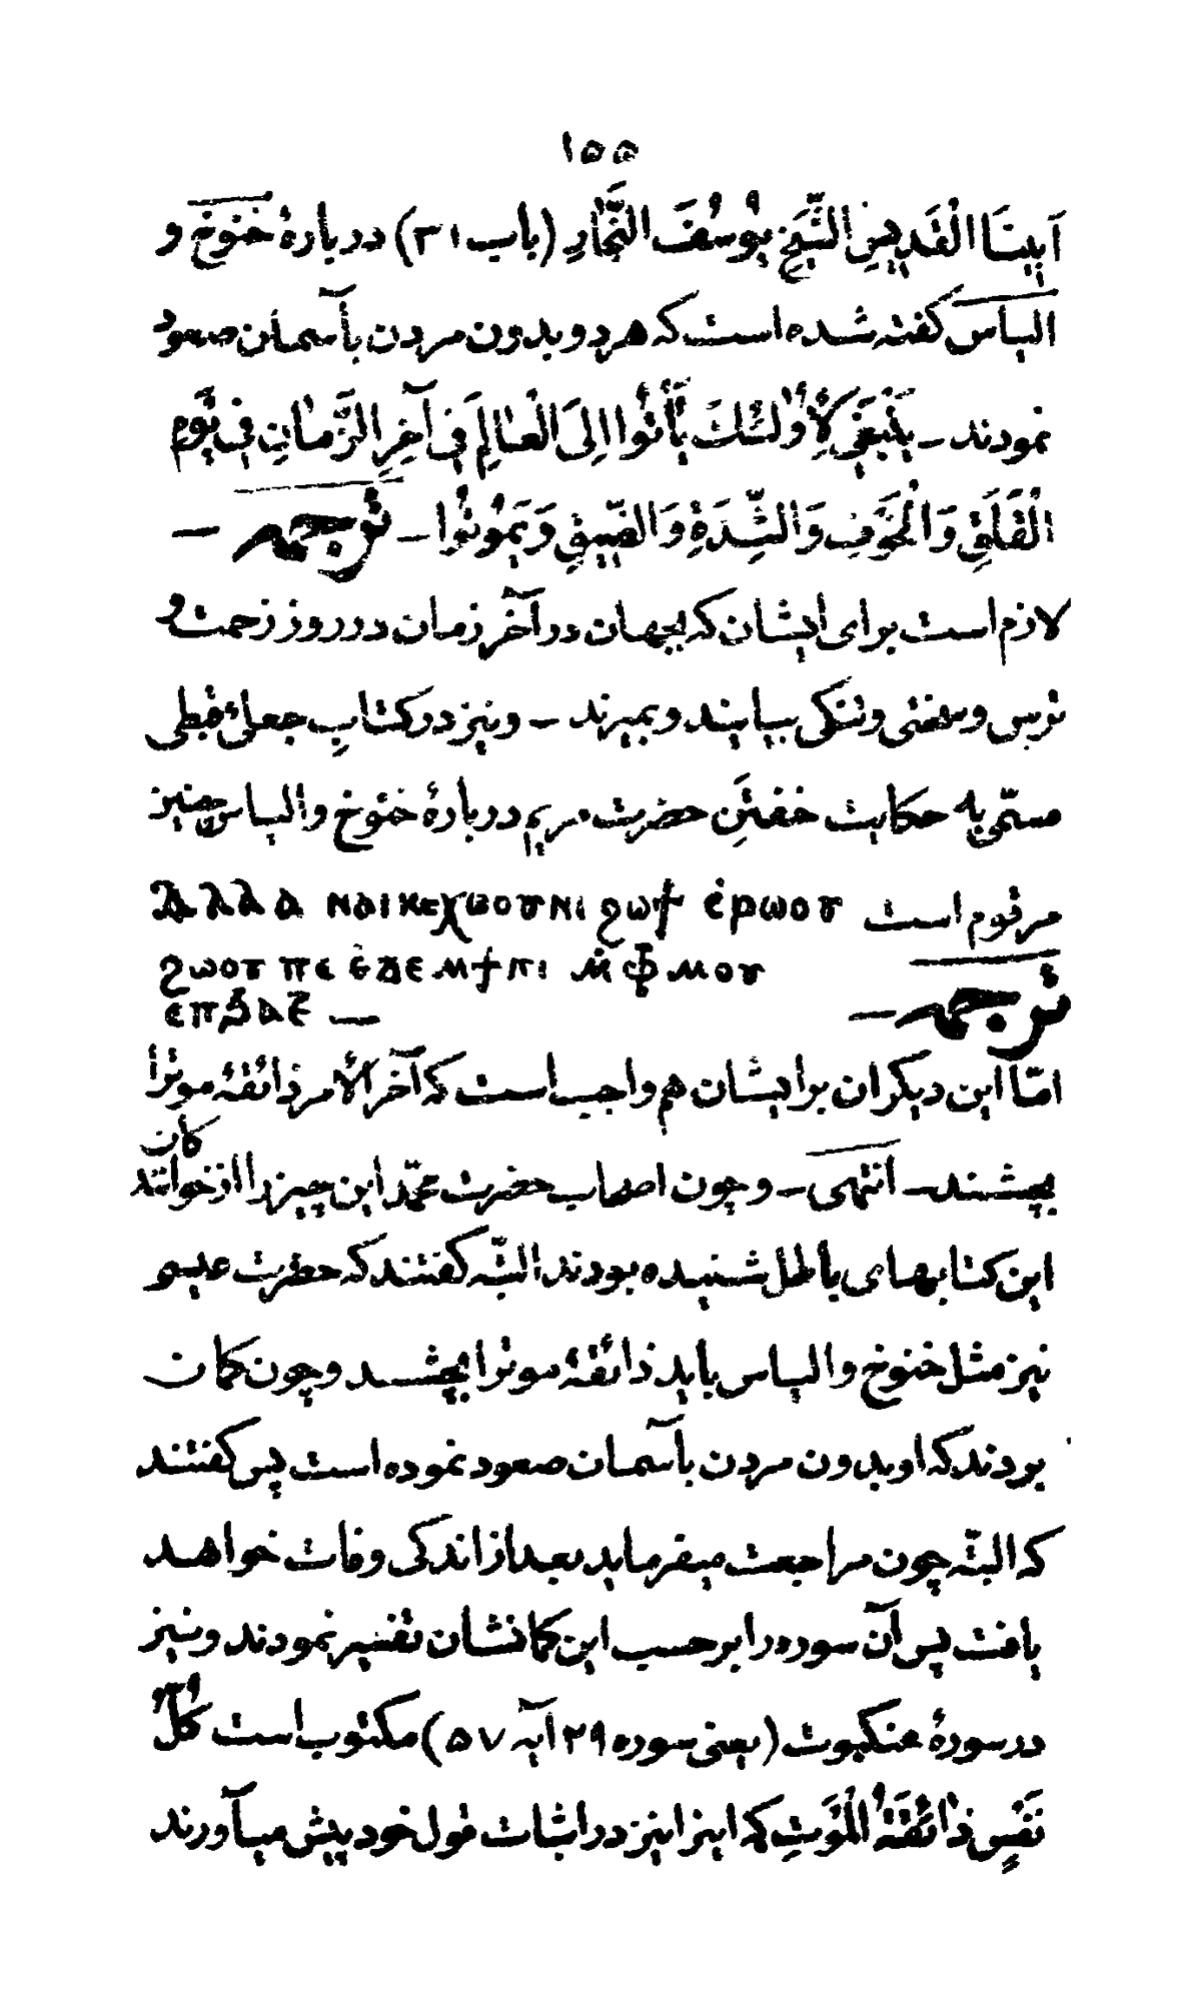 ١٥٥
اَبِينَا الْقِدِيسِ الشَّيخِ يُوسُفَ النَّجَّارِ (باب ٣١) دربارهٔ خنوخ و
الیاس گفته شده است که هر دو بدون مردن بآسمان صعود
نمودند – يَنْبَغِي لِأُولٰئِكَ يَأْتُوا اِلَى الْعَالَمِ فِي آخِرِ الزَّمَانِ فِي يَوْمِ
الْقَلَقِ وَالْخَوْفِ وَالشِّدَةِ وَالضِّيقِ وَيَمُوتُوا – ترجمه –
لازم است برای ایشان که بجهان در آخر زمان در روز زحمت و
ترس و سختی و تنگی بیایند و بمیرند – و نیز در کتابِ جعلیٔ قبطی
مسمّی به حکایت خفتنِ حضرت مریم دربارهٔ خنوخ و الیاس چنین
مرقوم است ⲁⲗⲗⲁ ⲛⲁⲓⲕⲉⲭⲱⲟⲩⲛⲓ ϩⲱϯ ⲉ̀ⲣⲱⲟⲩ
ϩⲱⲟⲩ ⲡⲉ ⲉ̀ϫⲉⲙϯⲡⲓ ⲙ̀ⲫⲙⲟⲩ
ترجمه – ⲉⲡϧⲁⲉ –
امّا این دیگران بر ایشان هم واجب است که آخر الأمر ذائقهٔ موترا
بچشند – انتهی – و چون اصحاب حضرت محمّد این چیز را از خوانندکان
این کتابهای باطل شنیده بودند البتّه گفتند که حضرت عیسی
نیز مثل خنوخ و الیاس باید ذائقهٔ موترا بچشد و چون گمان
بردند که او بدون مردن بآسمان صعود نموده است پس گفتند
که البتّه چون مراجعت میفرماید بعد از اندکی وفات خواهد
یافت پس آن سوره را بر حسب این گمانشان تفسیر نمودند و نیز
در سورهٔ عنکبوت (یعنی سوره ٢٩ آیه ٥٧) مکتوب است كُلُّ
نَفْسٍ ذَائِقَةُ الْمَوْتِ که اینرا نیز در اثبات قول خود پیش میآورند